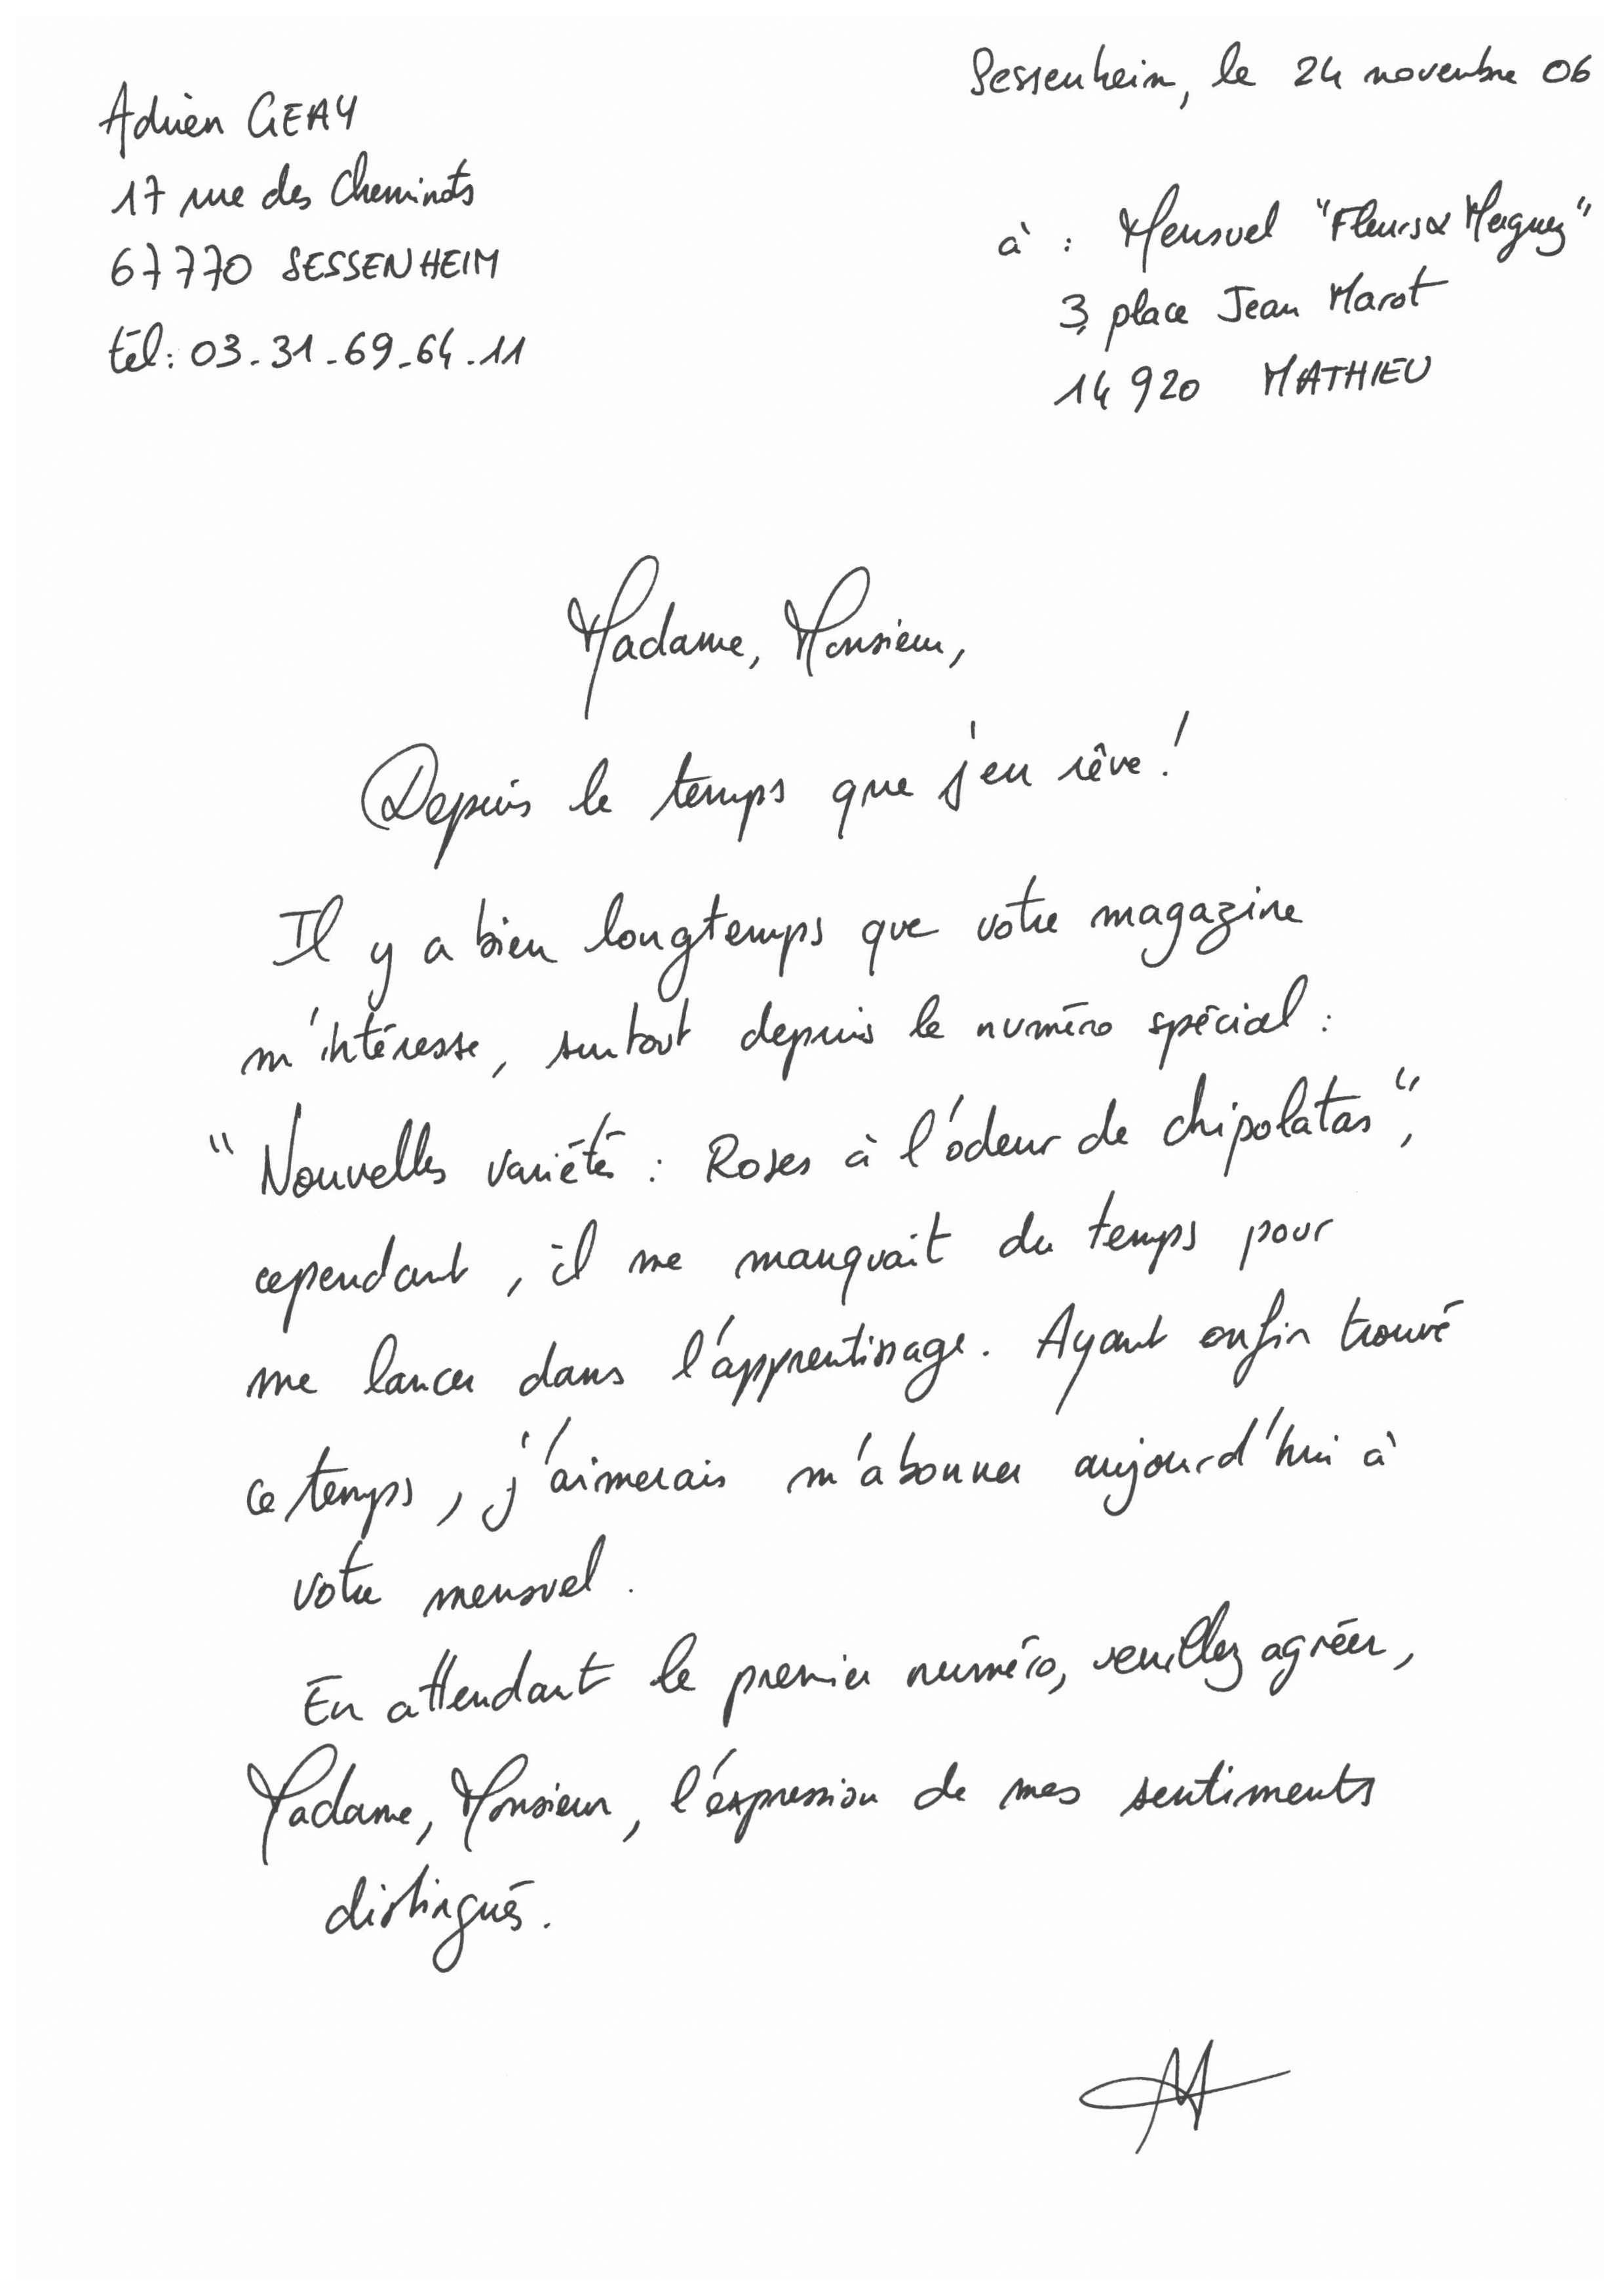 Sessenheim, le 24 novembre 06
Adrien GEAY
17 rue des Cheminots
67770 SESSENHEIM
tél: 03-31-69-64-11
à : Mensuel "Fleurs &
3, place Jean Marot
14920 MATHIEU
Madame, Monsieur,
Depuis le temps que j'en rêve!
Il y a bien longtemps que votre magazine
m'intéresse, surtout depuis le numéro spécial :
"Nouvelles variétés : Roses à l'odeur de chipolatas",
cependant, il me manquait du temps pour
me lancer dans l'apprentissage. Ayant enfin trouvé
ce temps, j'aimerais m'abonner aujourd'hui à
votre mensuel.
En attendant le premier numéro, veuillez agréer,
Madame, Monsieur, l'expression de mes sentiments
distingués.